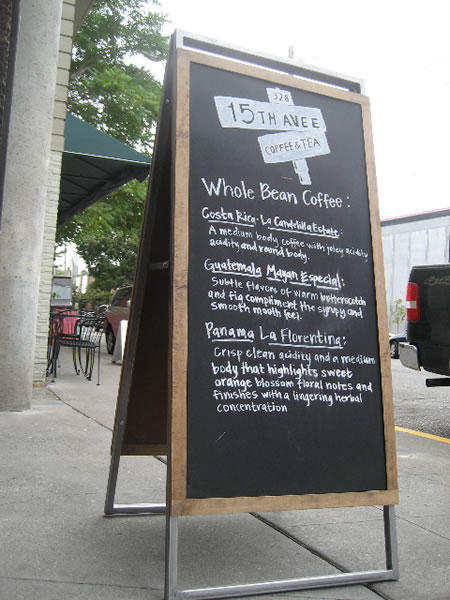 328
15TH AVE E
COFFEE & TEA
Whole Bean Coffee:
Costa Rica - La Candelilla Estate:
A medium body coffee with juicy acidity
acidity and round body.
Guatemala Mayan Especial:
Subtle flavors of warm butterscotch
and fig compliment the syrupy and
smooth mouth feel.
Panama La Florentina:
Crisp clean acidity and a medium
body that highlights sweet
orange blossom floral notes and
finishes with a lingering herbal
concentration